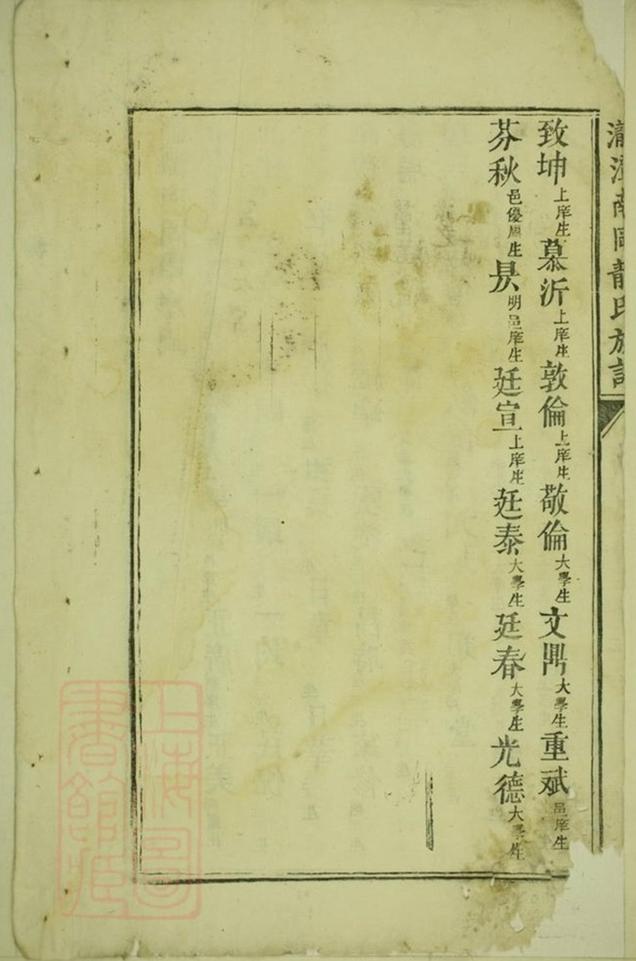 南岡龍氏族譜
致坤上庠生慕沂上庠生敦倫上庠生敬倫大學生文鼎大學生重斌邑庠生
芬秋邑優廩生昃明邑庠生廷宣上庠生廷泰大學生廷春大學生光德大學生
上海圖書館藏